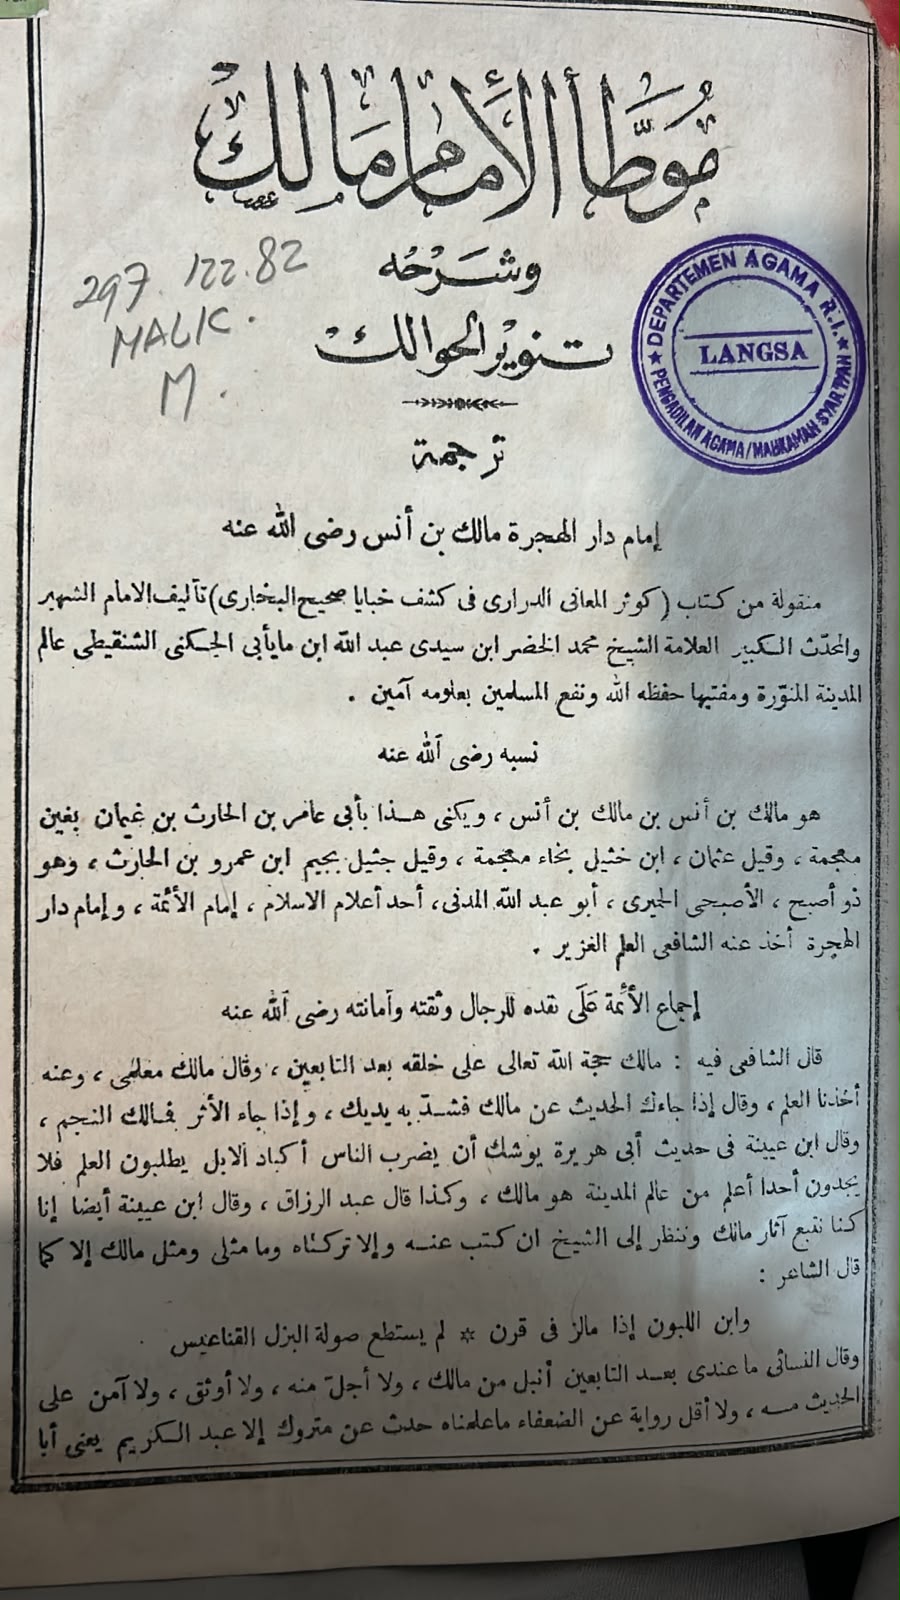 مُوَطَّأ الإِمَام مَالِك
297.122.82
MALIK.
M.
وشَرْحُه
تنوير الحوالك
DEPARTEMEN AGAMA R.I.
LANGSA
PENGADILAN AGAMA/MAHKAMAH SYAR'IYAH
ترجمة
إمام دار الهجرة مالك بن أنس رضى الله عنه
منقولة من كتاب (كوثر المعانى الدرارى فى كشف خبايا صحيح البخارى) تأليف الامام الشهير
والمحدّث الكبير العلامة الشيخ محمد الخضر ابن سيدى عبد الله ابن مايأبى الجكنى الشنقيطى عالم
المدينة المنوّرة ومفتيها حفظه الله ونفع المسلمين بعلومه آمين .
نسبه رضى الله عنه
هو مالك بن أنس بن مالك بن أنس ، ويكنى هذا بأبى عامر بن الحارث بن غيمان بغين
معجمة ، وقيل عثمان ، ابن خثيل بخاء معجمة ، وقيل جثيل بجيم ابن عمرو بن الحارث ، وهو
ذو أصبح ، الأصبحى الحميرى ، أبو عبد الله المدنى ، أحد أعلام الاسلام ، إمام الأئمة ، وإمام دار
الهجرة أخذ عنه الشافعى العلم الغزير .
إجماع الأئمة عَلَى نقده للرجال وثقته وأمانته رضى الله عنه
قال الشافعى فيه : مالك حجة الله تعالى على خلقه بعد التابعين ، وقال مالك معلمى ، وعنه
أخذنا العلم ، وقال إذا جاءك الحديث عن مالك فشدّ به يديك ، وإذا جاء الأثر فمالك النجم ،
وقال ابن عيينة فى حديث أبى هريرة يوشك أن يضرب الناس أكباد الابل يطلبون العلم فلا
يجدون أحدا أعلم من عالم المدينة هو مالك ، وكذا قال عبد الرزاق ، وقال ابن عيينة أيضا إنا
كنا نتبع آثار مالك وننظر إلى الشيخ ان كتب عنه وإلا تركناه وما مثلى ومثل مالك إلا كما
قال الشاعر :
وابن اللبون إذا مالز فى قرن * لم يستطع صولة البزل القناعيس
وقال النسائى ما عندى بعد التابعين أنبل من مالك ، ولا أجلّ منه ، ولا أوثق ، ولا آمن على
الحديث منه ، ولا أقل رواية عن الضعفاء ماعلمناه حدث عن متروك إلا عبد الكريم يعنى أبا